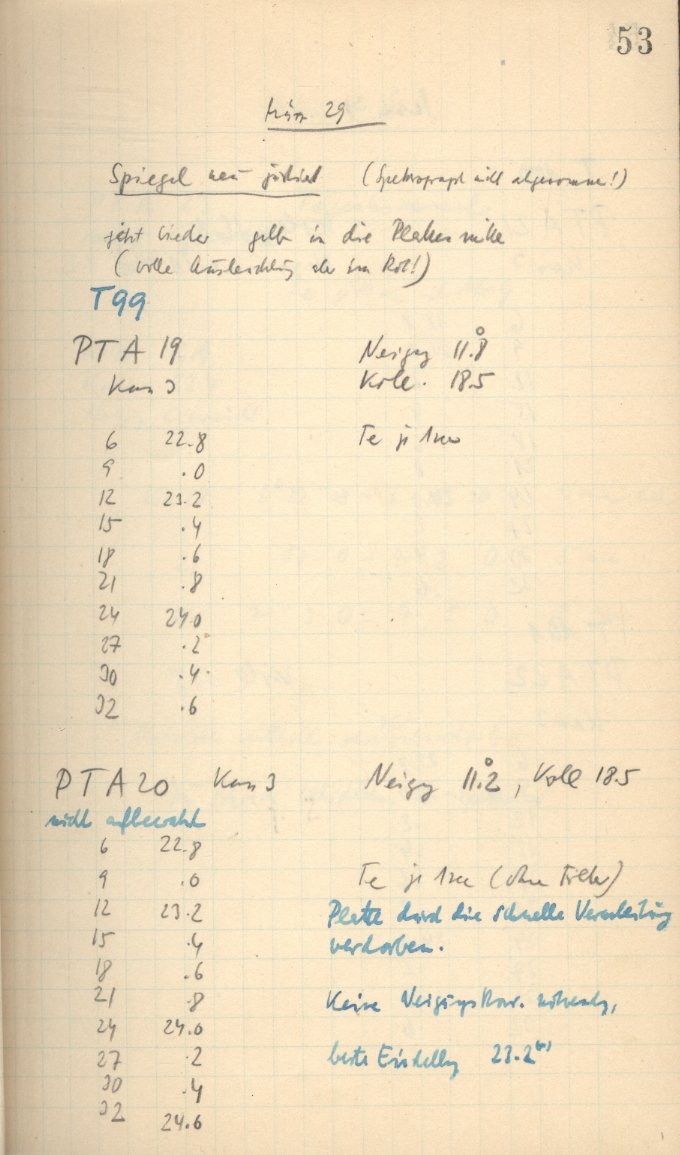 53
März 29
Spiegel neu justiert (Spektrograph nicht abgenommen!)
jetzt wieder gelb in die Plattenmitte
(volle Ausleuchtung aber im Rot!)
T99
PTA 19 Neigg 11.°8
Kam 3 Koll. 18.5
6 22.8 Te je 1sec
9 .0
12 23.2
15 .4
18 .6
21 .8
24 24.0
27 .2
30 .4
32 .6
PTA 20 Kam 3 Neigg 11.°2, Koll 18.5
nicht aufbewahrt
6 22.8
9 .0 Te je 1sec (ohne Filter)
12 23.2 Platte durch die schnelle Verarbeitung
15 .4 verdorben.
18 .6
21 .8 Keine Neigungskorr. notwendig,
24 24.0
27 .2 beste Einstellg 23.2
30 .4
32 24.6